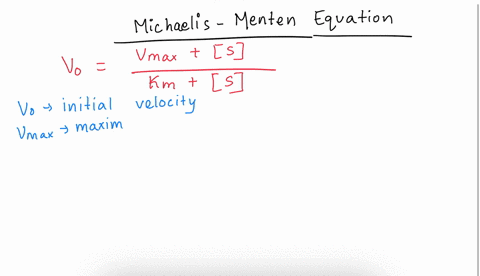 Michaelis - Menten Equation
V₀ = Vmax + [S] / Km + [S]
V₀ → initial velocity
Vmax → maxim